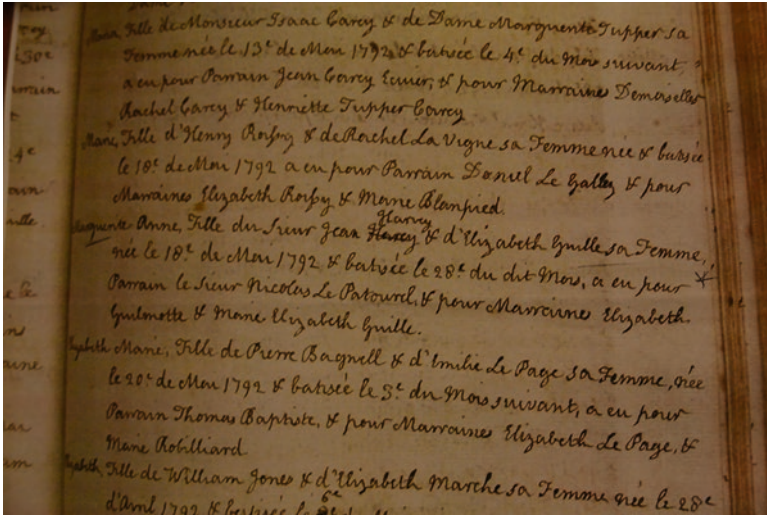 Fille de Monsieur Isaac Carey & de Dame Marguerite Tupper sa
Femme née le 13e de Mai 1792 & batisée le 4e du Mois suivant,
a eu pour Parrain Jean Carey Ecuier, & pour Marraines Demoiselles
Rachel Carey & Henriette Tupper Carey
Marie, Fille d'Henry & de Rachel La Vigne sa Femme née & batisée
le 18e de Mai 1792 a eu pour Parrain Daniel Le Galley & pour
Marraines Elizabeth & Marie Blanpied.
Harvey
Marguerite Anne, Fille du Sieur Jean Harvey & d'Elizabeth Guille sa Femme,
née le 18e de Mai 1792 & batisée le 28e du dit Mois, a eu pour
Parrain le Sieur Nicolas Le Patourel, & pour Marraines Elizabeth
Guilmotte & Marie Elizabeth Guille.
Elizabeth Marie, Fille de Pierre Bagnell & d'Emilie Le Page sa Femme, née
le 20e de Mai 1792 & batisée le 3e du Mois suivant, a eu pour
Parrain Thomas Baptiste, & pour Marraines Elizabeth Le Page, &
Marie Robilliard.
Elizabeth, Fille de William Jones & d'Elizabeth Marche sa Femme née le 28e
6e
d'Avril 1792 & batisée le